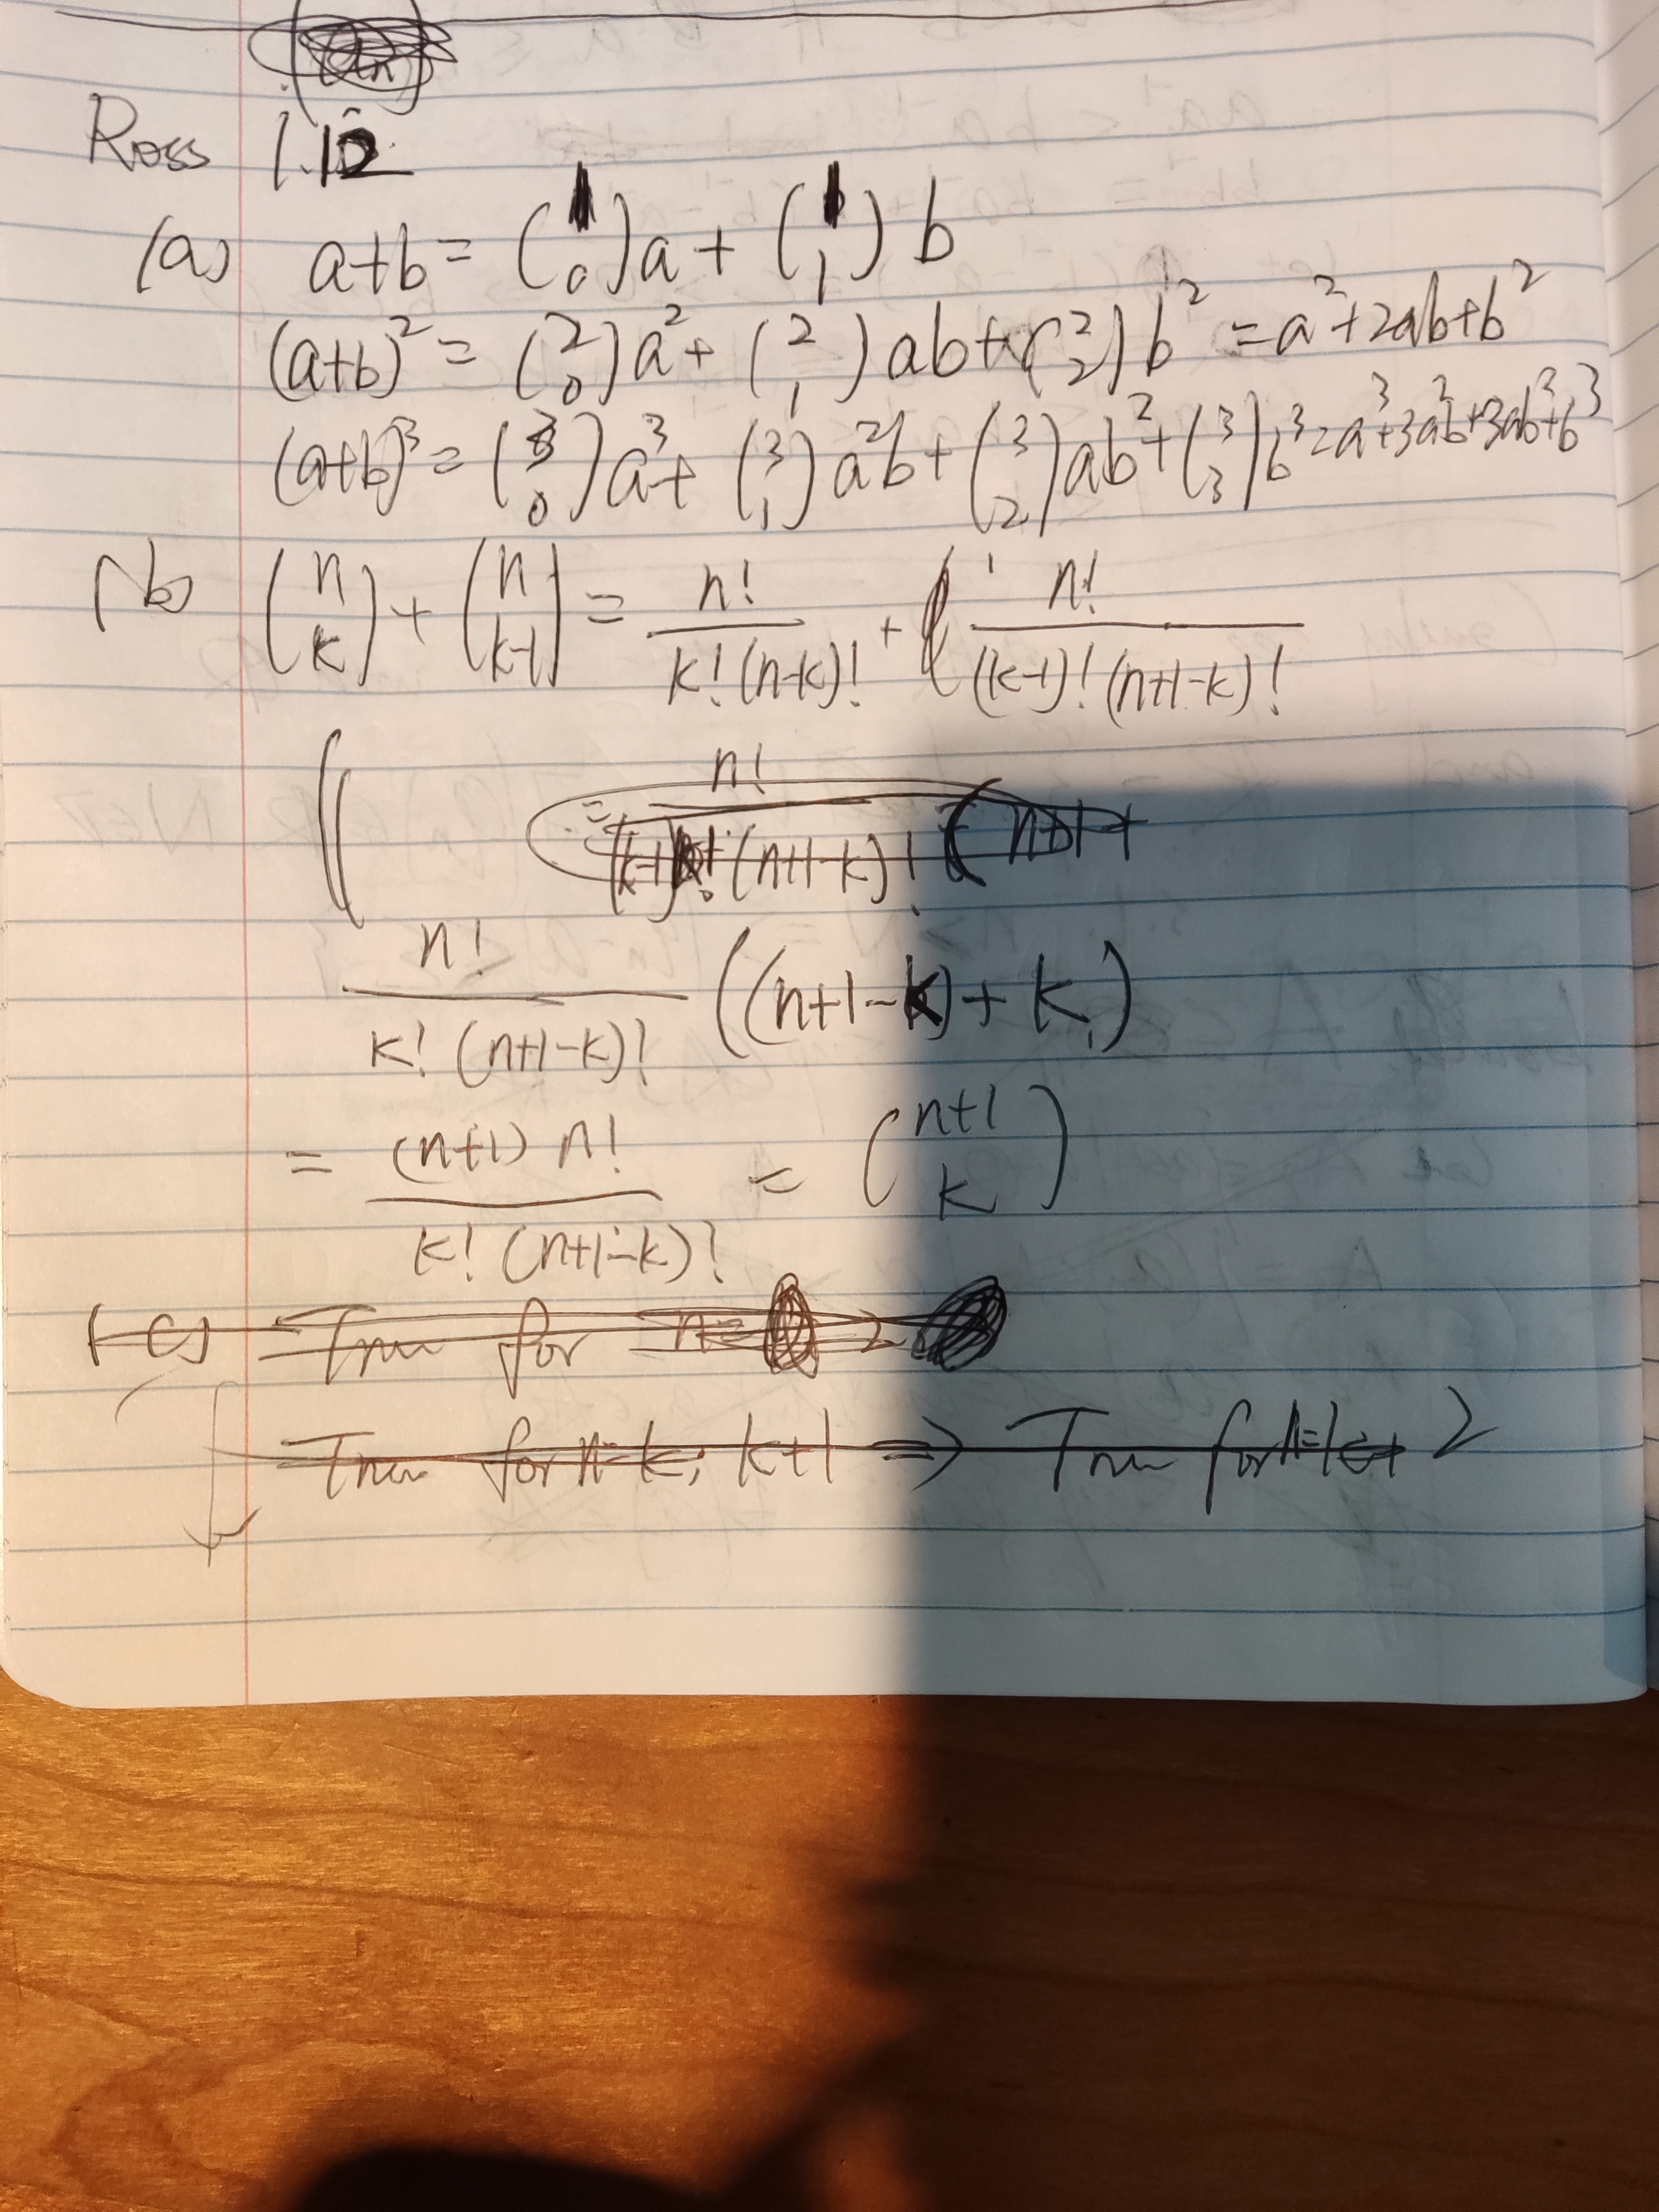 Ross 1.12
(a) a+b = (1 0)a + (1 1)b
(a+b)² = (2 0)a² + (2 1)ab + (2 2)b² = a²+2ab+b²
(a+b)³ = (3 0)a³ + (3 1)a²b + (3 2)ab² + (3 3)b³ = a³+3a²b+3ab²+b³
(b) (n k) + (n k-1) = n!/(k!(n-k)!) + n!/((k-1)!(n+1-k)!)
n!/((k-1)!(n+1-k)!) (n+1
n!/(k!(n+1-k)!) ((n+1-k)+k)
= (n+1)n!/(k!(n+1-k)!) = (n+1 k)
(c) True for n= 2
True for n=k, k+1 ⇒ True for n=k+2